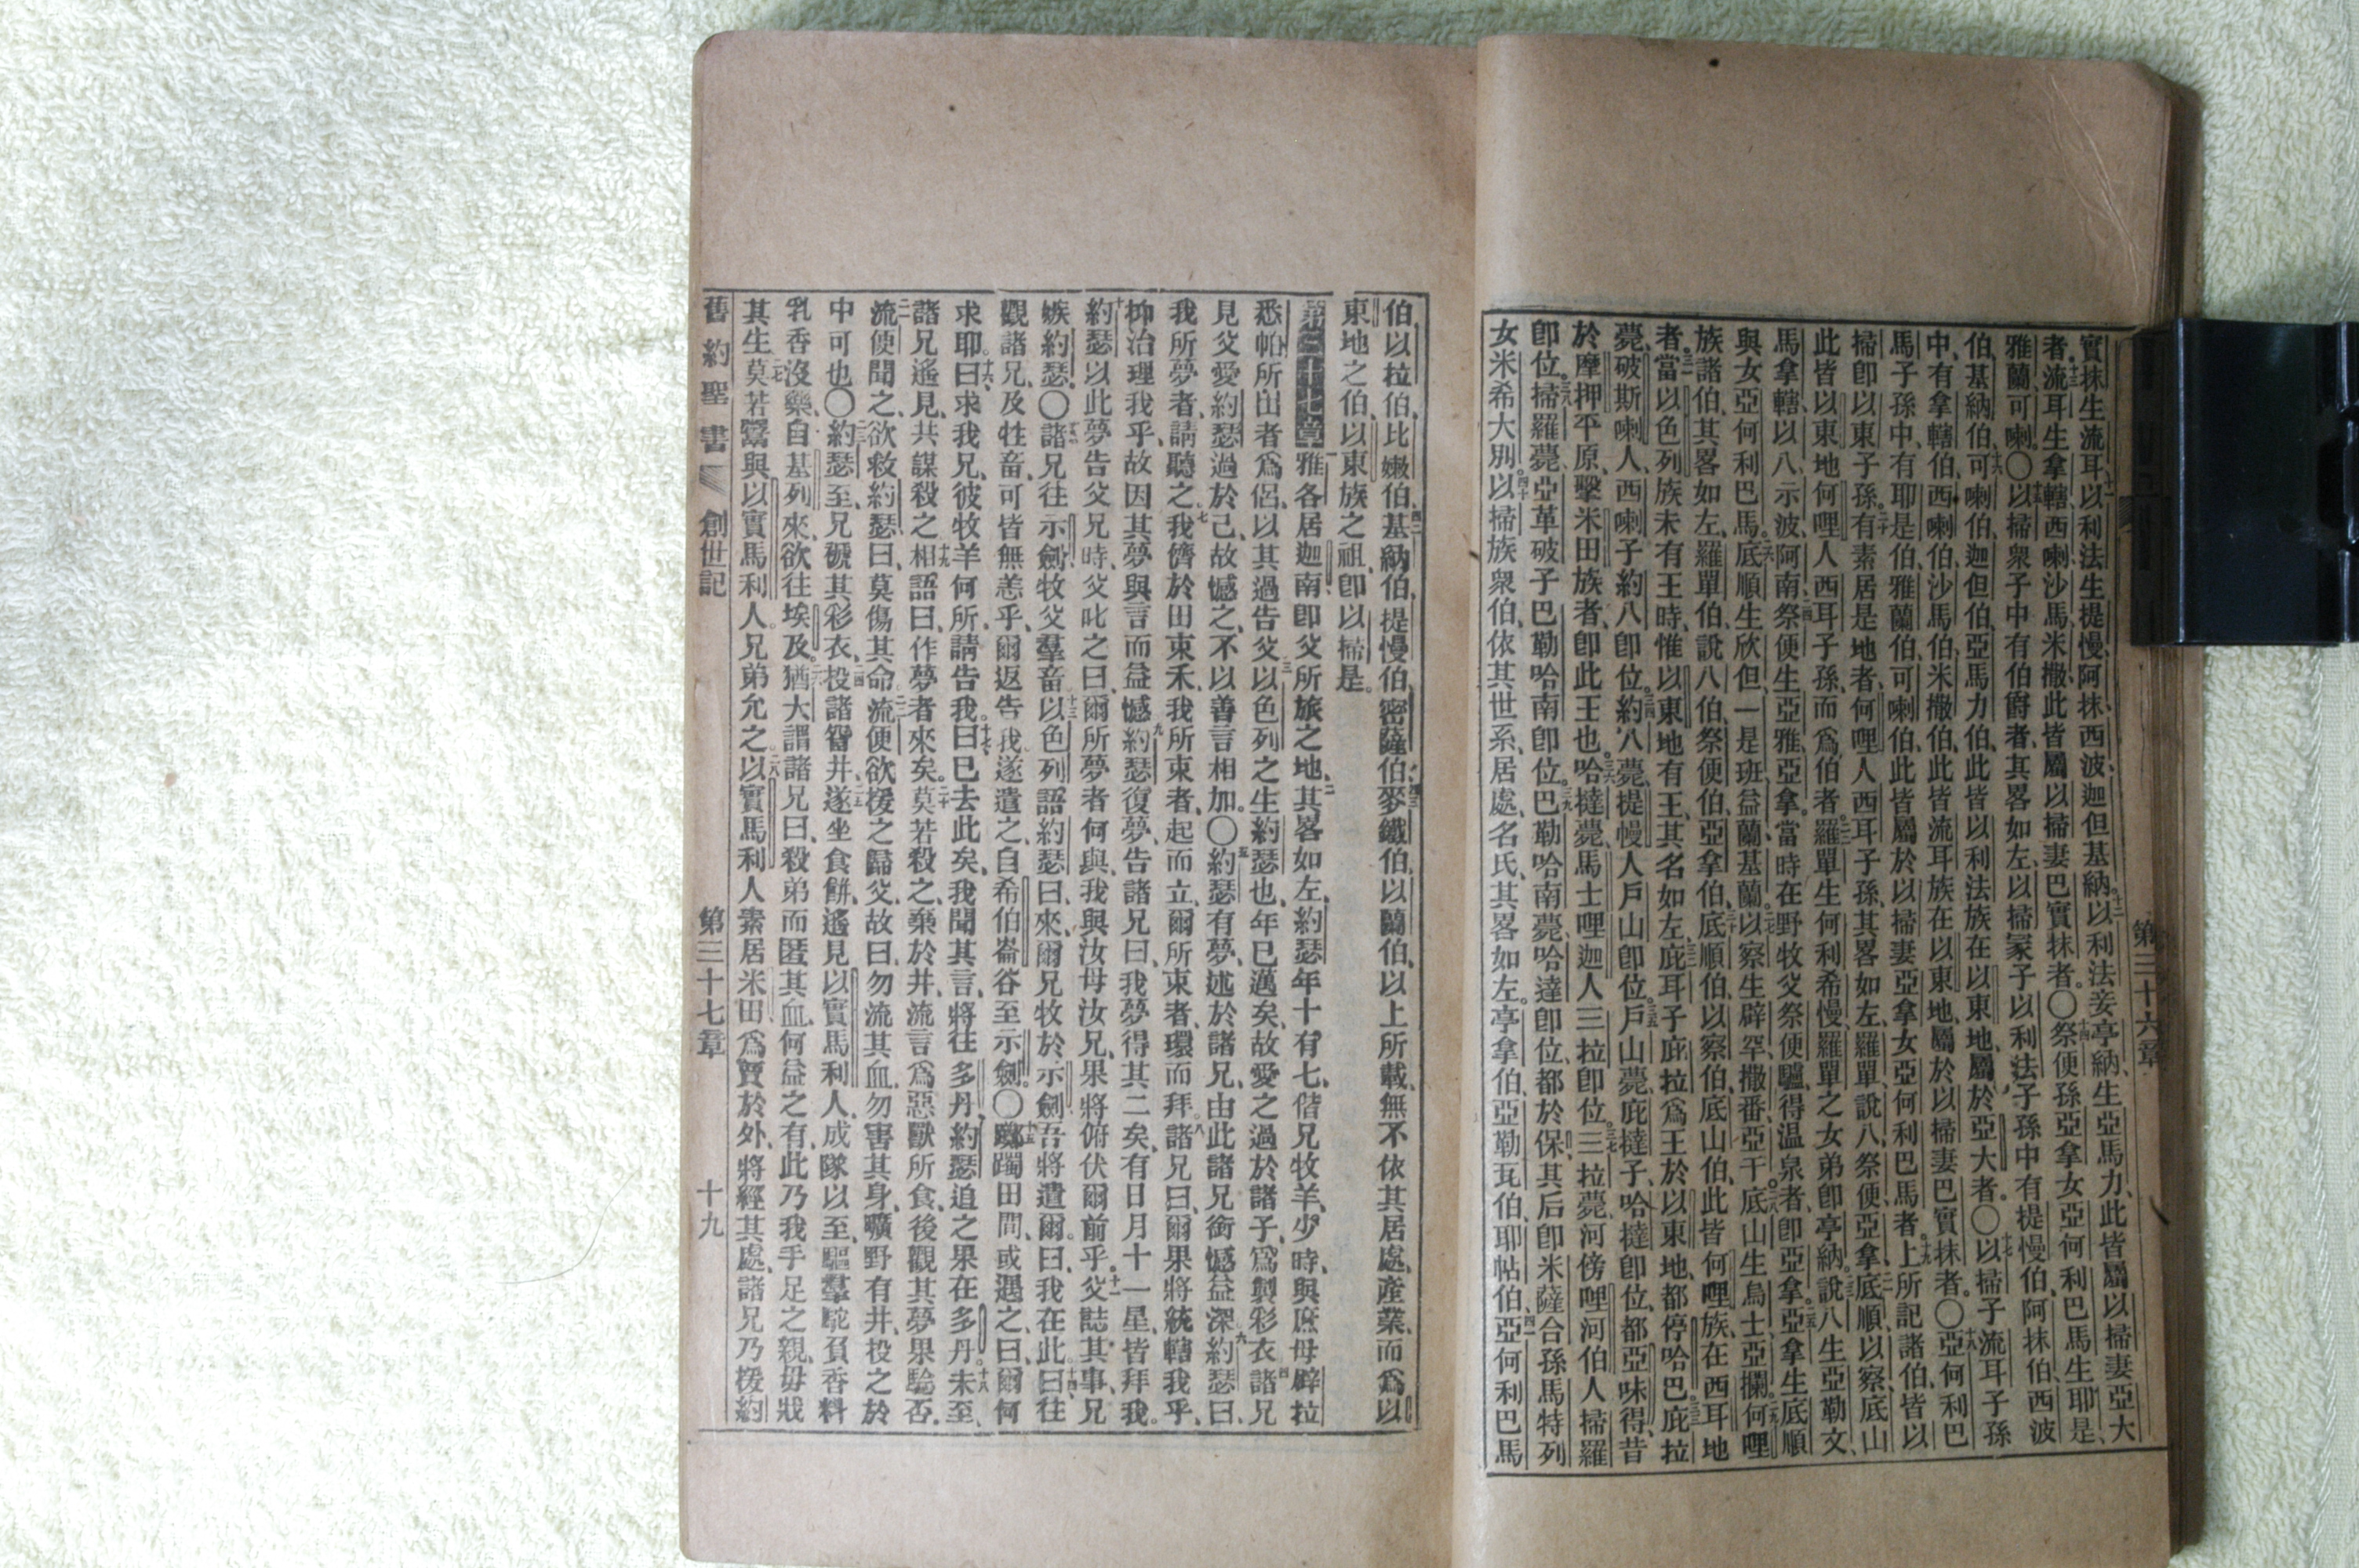 實抹生流耳、十一以利法生提慢、阿抹、西波、迦但、基納。十二以利法妾亭納、生亞馬力、此皆屬以掃妻亞大
者。十三流耳生拿轄、西喇、沙馬、米撒、此皆屬以掃妻巴實抹者。〇十四祭便孫亞拿女亞何利巴馬生耶是、
雅蘭、可喇。〇十五以掃衆子中有伯爵者、其畧如左、以掃冢子以利法子孫中、有提慢伯、阿抹伯、西波
伯、基納伯、十六可喇伯、迦但伯、亞馬力伯、此皆以利法族、在以東地、屬於亞大者。〇十七以掃子流耳子孫
中、有拿轄伯、西喇伯、沙馬伯、米撒伯、此皆流耳族、在以東地、屬於以掃妻巴實抹者。〇十八亞何利巴
馬子孫中、有耶是伯、雅蘭伯、可喇伯、此皆屬於以掃妻亞拿女亞何利巴馬者。十九上所記諸伯、皆以
掃卽以東子孫。二十有素居是地者、何哩人西耳子孫、其畧如左、羅單、說八、祭便、亞拿、二一底順、以察、底山、
此皆以東地何哩人西耳子孫、而爲伯者。二二羅單生何利、希慢、羅單之女弟卽亭納。二三說八生亞勒文、
馬拿轄、以八、示波、阿南。二四祭便生亞雅、亞拿、當時在野牧父祭便驢、得温泉者、卽亞拿。二五亞拿生底順、
與女亞何利巴馬。二六底順生欣但、一是班、益蘭、基蘭。二七以察生辟罕、撒番、亞干。二八底山生烏士、亞欄。二九何哩
族諸伯、其畧如左、羅單伯、說八伯、祭便伯、亞拿伯、三十底順伯、以察伯、底山伯、此皆何哩族、在西耳地
者。三一當以色列族未有王時、惟以東地有王、其名如左、三二庇耳子庇拉爲王於以東地、都停哈巴。三三庇拉
薨、破斯喇人西喇子約八卽位。三四約八薨、提幔人戶山卽位。三五戶山薨、庇撻子哈撻卽位、都亞味得、昔
於摩押平原、擊米田族者、卽此王也。三六哈撻薨、馬士哩迦人三拉卽位。三七三拉薨、河傍哩河伯人掃羅
卽位。三八掃羅薨、亞革破子巴勒哈南卽位。三九巴勒哈南薨、哈達卽位、都於保、其后卽米薩合孫、馬特列
女米希大別。四十以掃族衆伯、依其世系、居處、名氏、其畧如左。亭拿伯、亞勒瓦伯、耶帖伯、四一亞何利巴馬
第三十六章
伯、以拉伯、比嫩伯、四二基納伯、提慢伯、密薩伯、四三麥鐵伯、以蘭伯、以上所載、無不依其居處、產業、而爲以
東地之伯、以東族之祖、卽以掃是。
第三十七章 一雅各居迦南、卽父所旅之地、二其畧如左、約瑟年十有七、偕兄牧羊、少時、與庶母辟拉
悉帕所出者爲侶、以其過告父、三以色列之生約瑟也、年已邁矣、故愛之過於諸子、爲製彩衣、四諸兄
見父愛約瑟過於己、故憾之、不以善言相加。〇五約瑟有夢、述於諸兄、由此諸兄銜憾益深、六約瑟曰、
我所夢者、請聽之、七我儕於田束禾、我所束者、起而立、爾所束者、環而拜。八諸兄曰、爾果將統轄我乎、
抑治理我乎、故因其夢與言而益憾。九約瑟復夢、告諸兄曰、我夢得其二矣、有日月十一星皆拜我。
十約瑟以此夢告父兄時、父叱之曰、爾所夢者何與、我與汝母汝兄、果將俯伏爾前乎。十一父誌其事、兄
嫉約瑟。〇十二諸兄往示劍、牧父羣畜、十三以色列語約瑟曰、來、爾兄牧於示劍、吾將遣爾。曰、我在此。十四曰、往
觀諸兄、及牲畜、可皆無恙乎、爾返告我、遂遣之、自希伯崙谷至示劍。〇十五躑躅田間、或遇之、曰、爾何
求耶。十六曰、求我兄、彼牧羊何所、請告我。十七曰、已去此矣、我聞其言、將往多丹、約瑟追之、果在多丹。十八未至、
諸兄遙見、共謀殺之、十九相語曰、作夢者來矣。二十莫若殺之、棄於井、流言爲惡獸所食、後觀其夢果驗否、
二一流便聞之、欲救約瑟、曰、莫傷其命。二二流便欲援之歸父、故曰、勿流其血、勿害其身、曠野有井、投之於
中可也。〇二三約瑟至、兄褫其彩衣、二四投諸智井、二五遂坐食餅、遙見以實馬利人、成隊以至、驅羣駝、負香料、
乳香、沒藥、自基列來、欲往埃及。二六猶大謂諸兄曰、殺弟而匿其血、何益之有、此乃我手足之親、毋戕
其生、二七莫若鬻與以實馬利人。兄弟允之。二八以實馬利人素居米田、爲賈於外、將經其處、諸兄乃援約
舊約聖書 創世記 第三十七章 十九